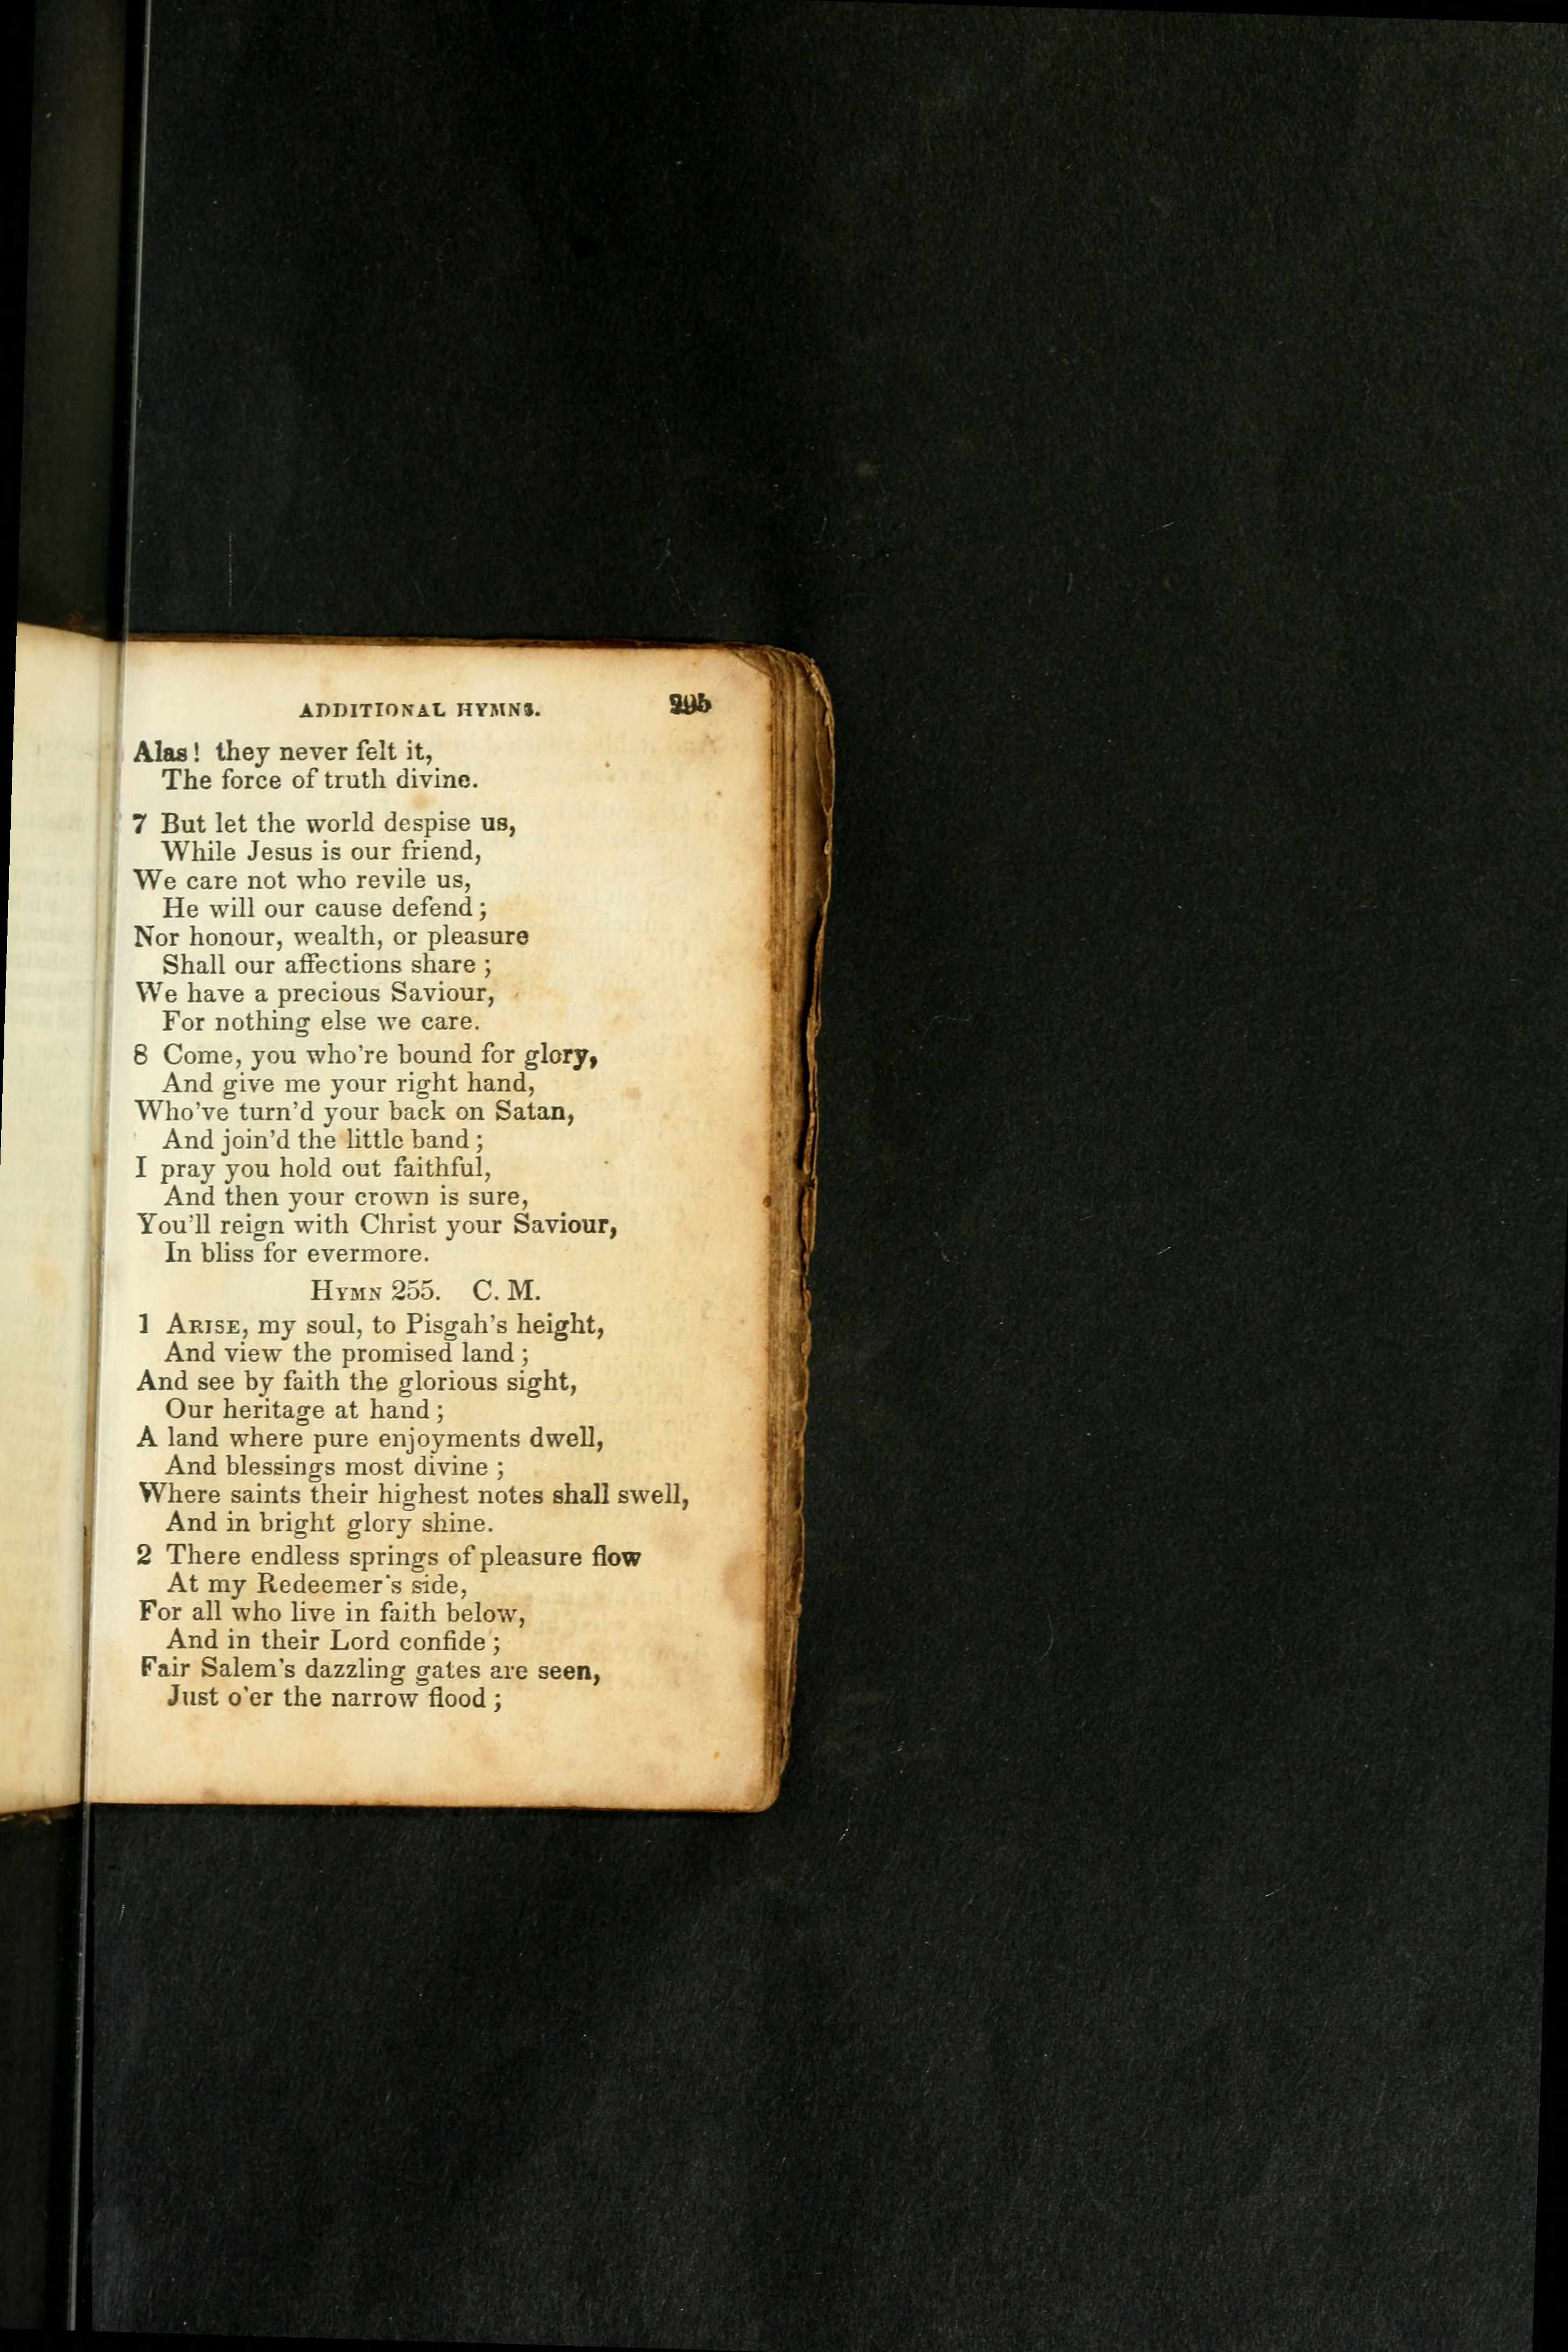 ADDITIONAL HYMNS. 295
Alas! they never felt it,
The force of truth divine.
7 But let the world despise us,
While Jesus is our friend,
We care not who revile us,
He will our cause defend;
Nor honour, wealth, or pleasure
Shall our affections share;
We have a precious Saviour,
For nothing else we care.
8 Come, you who're bound for glory,
And give me your right hand,
Who've turn'd your back on Satan,
And join'd the little band;
I pray you hold out faithful,
And then your crown is sure,
You'll reign with Christ your Saviour,
In bliss for evermore.
HYMN 255. C. M.
1 ARISE, my soul, to Pisgah's height,
And view the promised land;
And see by faith the glorious sight,
Our heritage at hand;
A land where pure enjoyments dwell,
And blessings most divine;
Where saints their highest notes shall swell,
And in bright glory shine.
2 There endless springs of pleasure flow
At my Redeemer's side,
For all who live in faith below,
And in their Lord confide;
Fair Salem's dazzling gates are seen,
Just o'er the narrow flood;